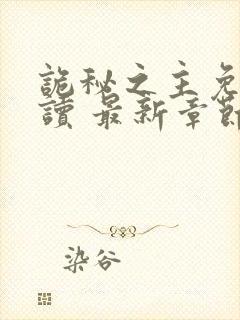 詭秘之主免
讀 最新章節
染谷